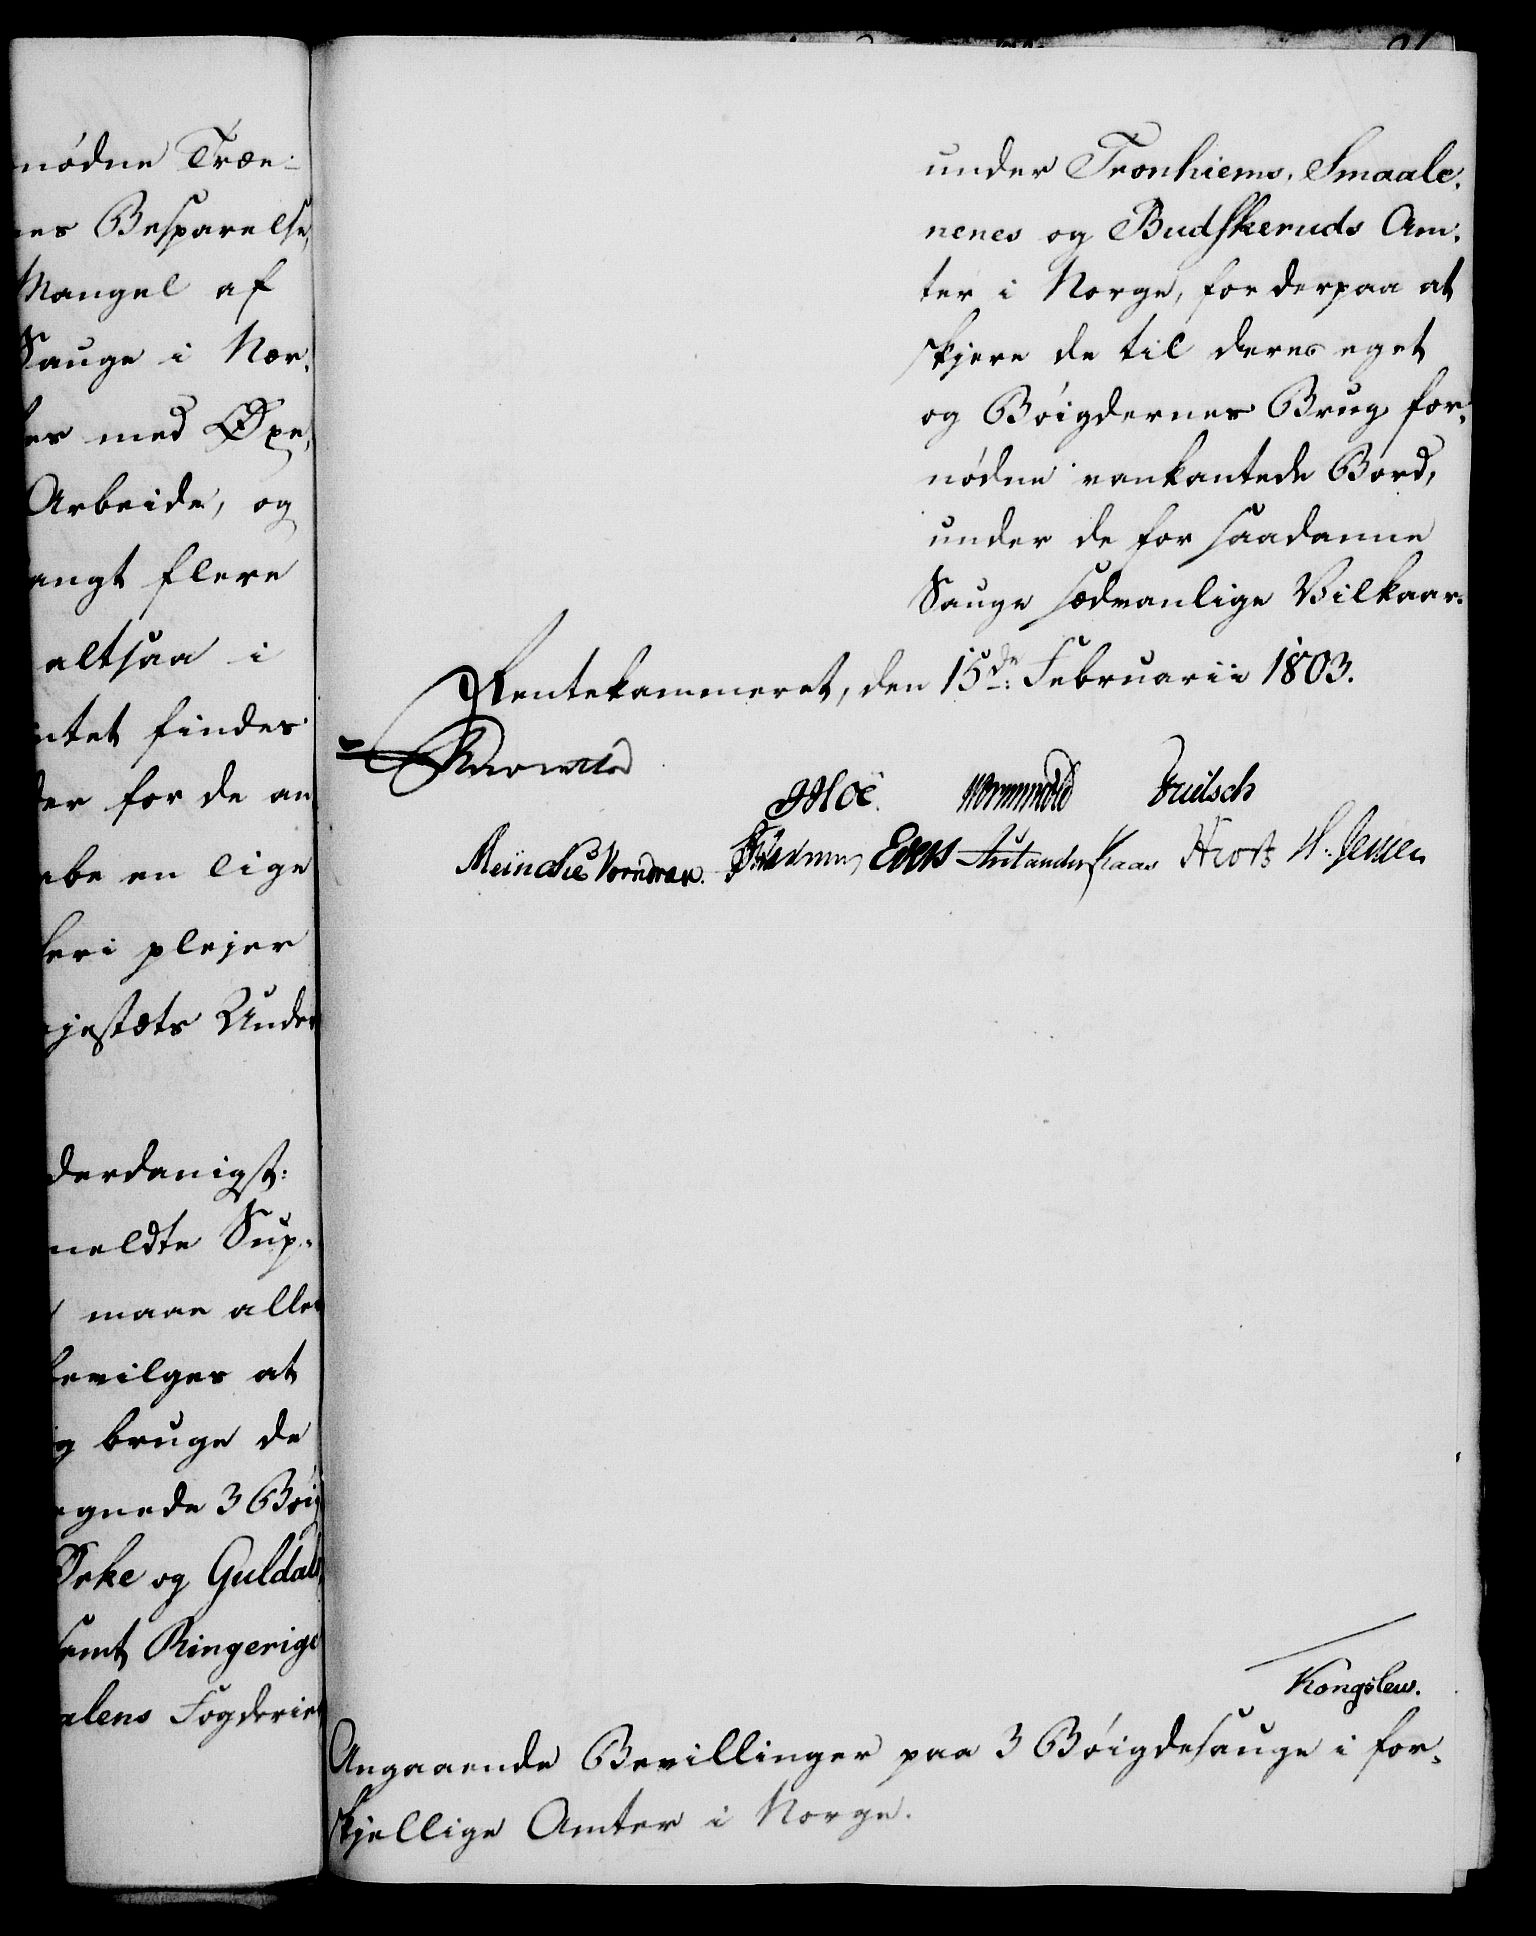 nødne Træe-
nes Besparelse,
Mangel af
Sauge i Nær-
es med Øxe,
Arbeide, og
langt flere
altsaa i
ntet findes
der for de an
abe en lige
keri plejer
ajestæts Under
derdanigst:
meldte Sup-
maae aller
bevilges at
og bruge de
egnede 3 Böig
Orke og Guldals
samt Ringerige
alens Fogderier
under Tronhiems, Smaale-
nenes og Budskeruds Am-
ter i Norge, for derpaa at
skjere de til deres eget
og Böigdernes Brug for-
nödne vankantede Bord,
under de for saadanne
Sauge sædvanlige Vilkaar.
Rentekammeret, den 15de Februarii 1803.
Moë. Wormskiold
Meinche Vorndran. Evers Kaas H. Jensen
Kongslew.
Angaaende Bevillinger paa 3 Böigdesauge i for-
skjellige Amter i Norge.